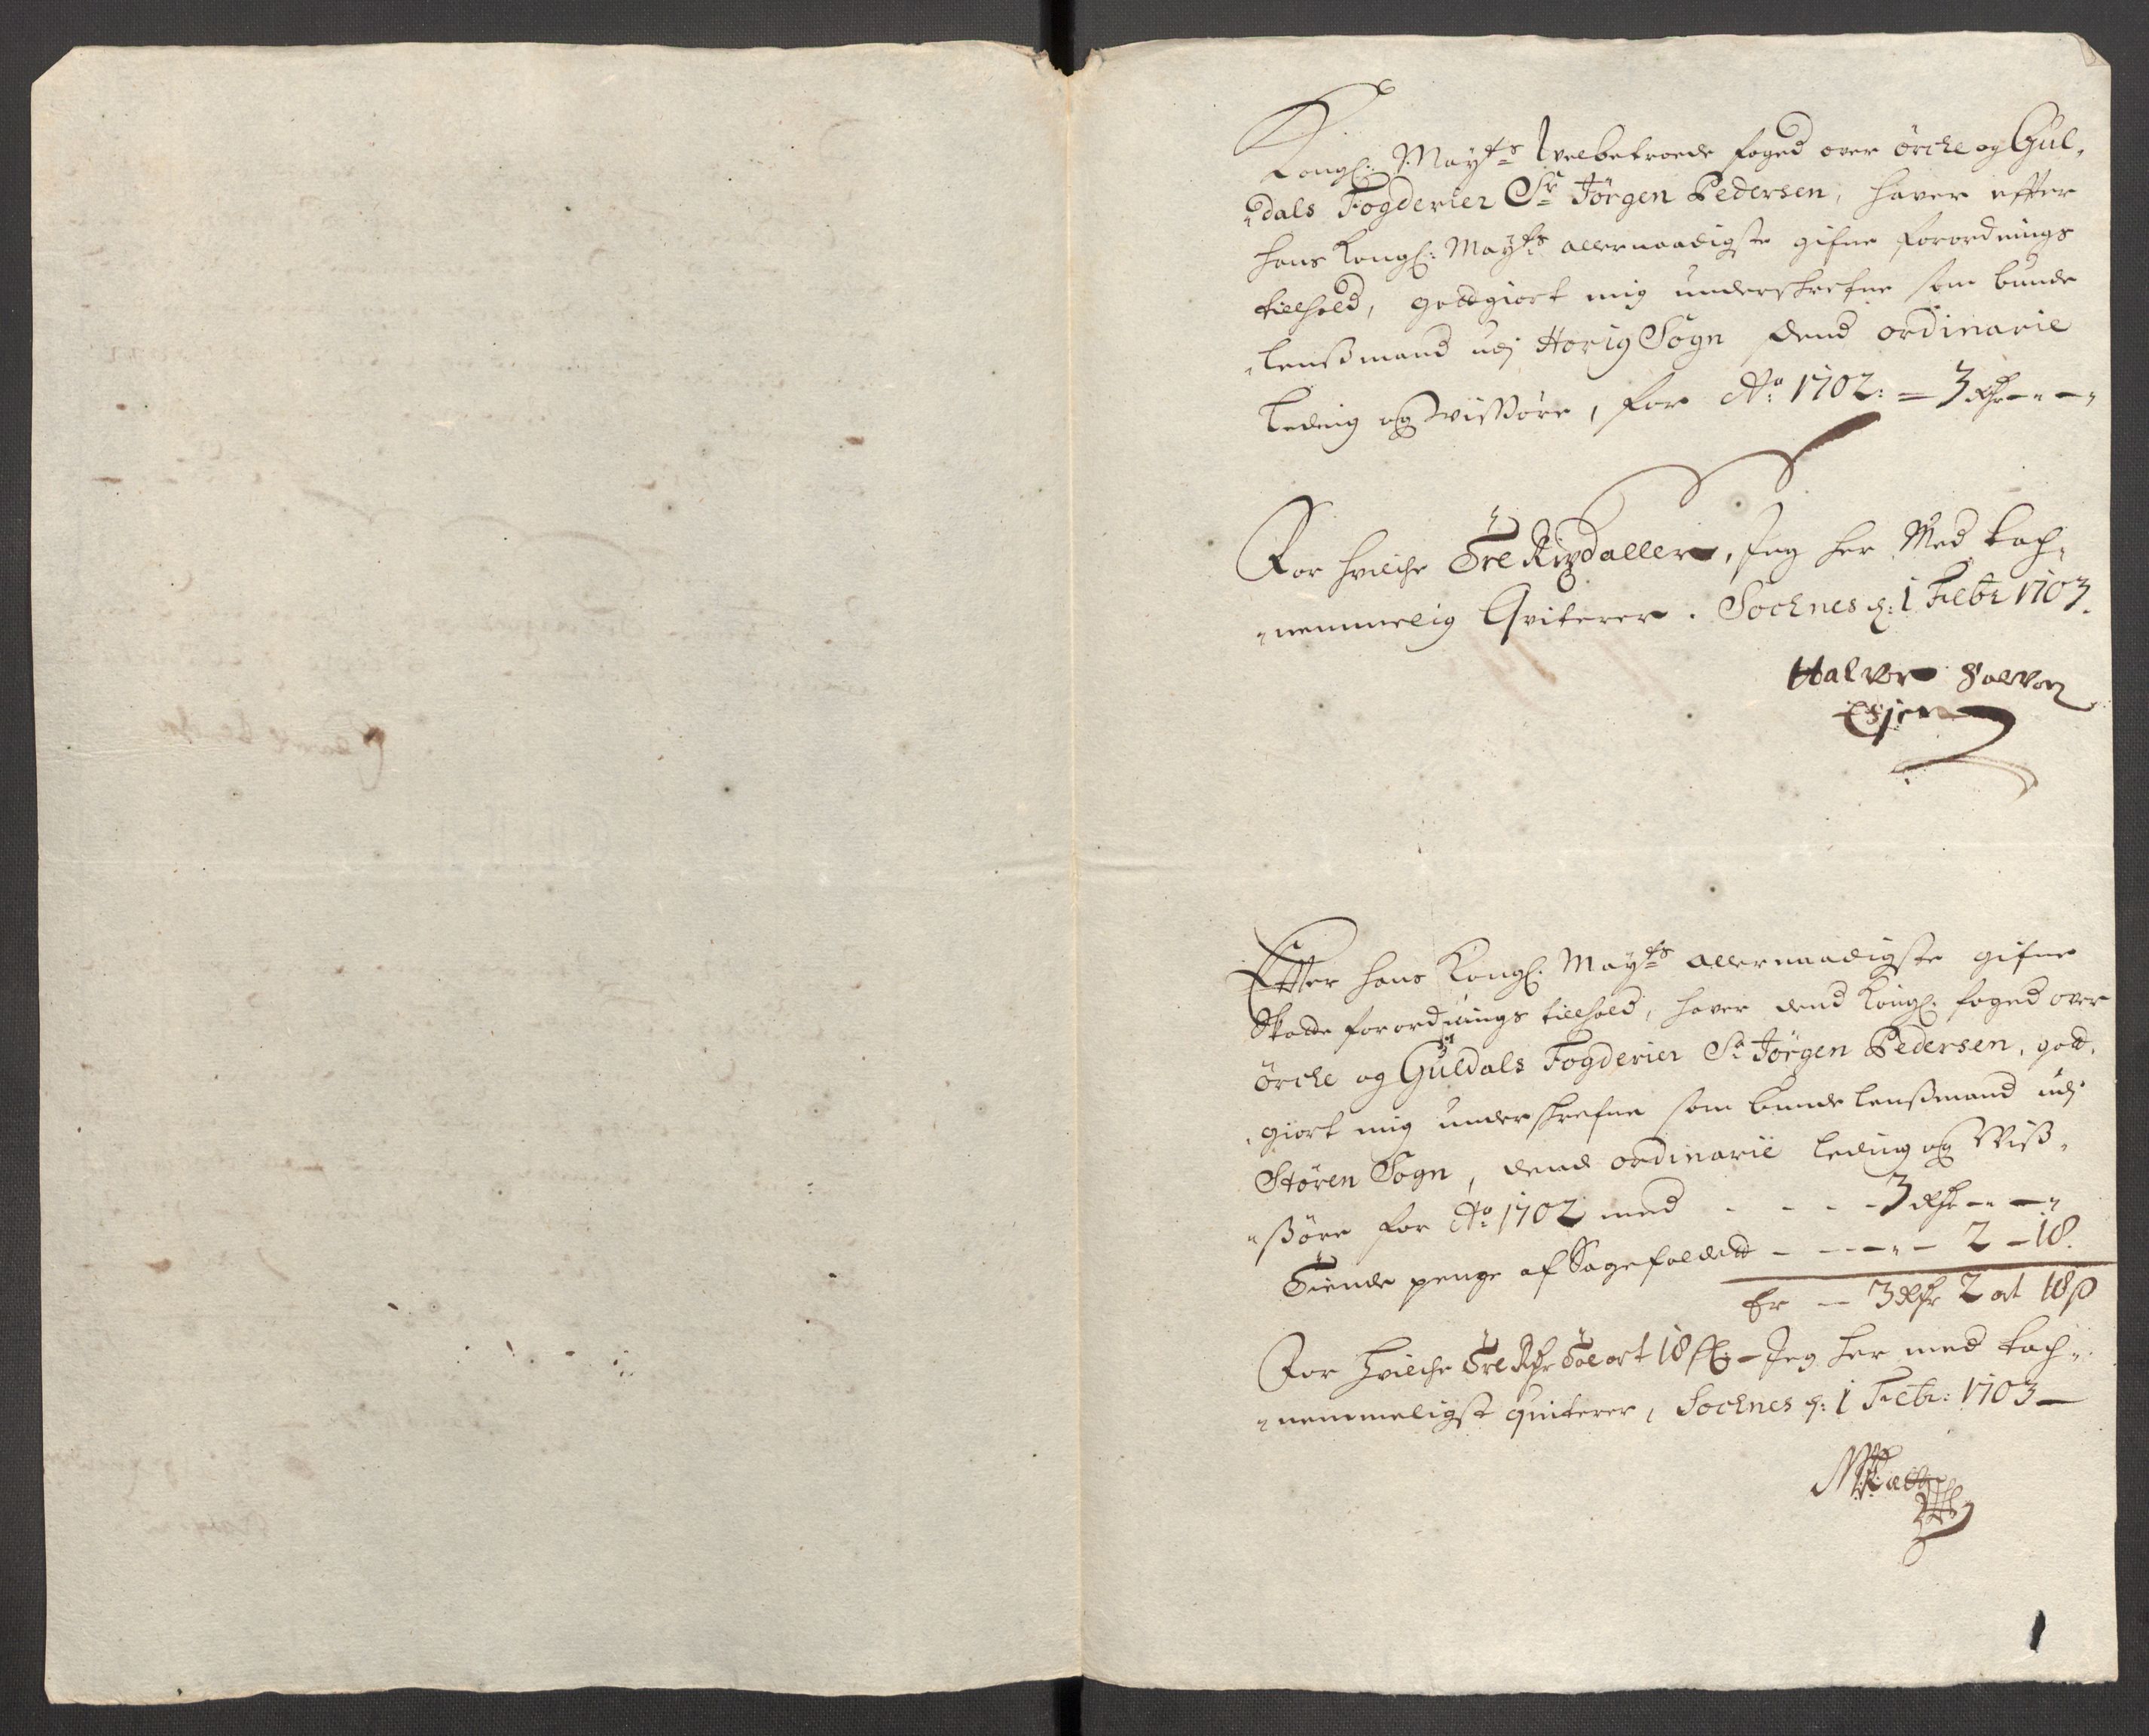 Kongl: Mayts Welbetroede foged over örche og Gul,
„dals Fogderier Sr Jörgen Pedersen, hafver effter
hans Kongl: Mayts allernaadigste gifne forordnings
tillhold, gottgiort mig underskrefne som bunde
„lenßmand udj Horig Sogn dend ordinarie
Leding og Wissöre, for Ao: 1702: = 3 Rdr - „ - „
For hvilche Tre Rixdaller, Jeg her Med tach„
„nemmelig Qviterer. Sochnes d: 1 Febr 1703.
Halvor
Effter hans Kongl: Mayts allernaadigste gifne
Skatte forordnings tillhold, hafver dend Kongl: foged over
örche og Guldals Fogderier Sr Jörgen Pedersen, gott„
„giort mig underskrefne som bunde lenßmand udj
Stören Sogn, dend ordinarie leding og Wiß„
„ßöre for Ao: 1702 med - - - - 3 Rdr - „ - „
Tiende penge af Sagefaldet - - - - „ - 2 - 18.
Er - 3 Rdr 2 ort 18 s
For hvilche Tre Rdr Toe ort 18 s: - Jeg her med tach„
„nemmeligst quiterer, Sochnes d: 1 Febr: 1703 -